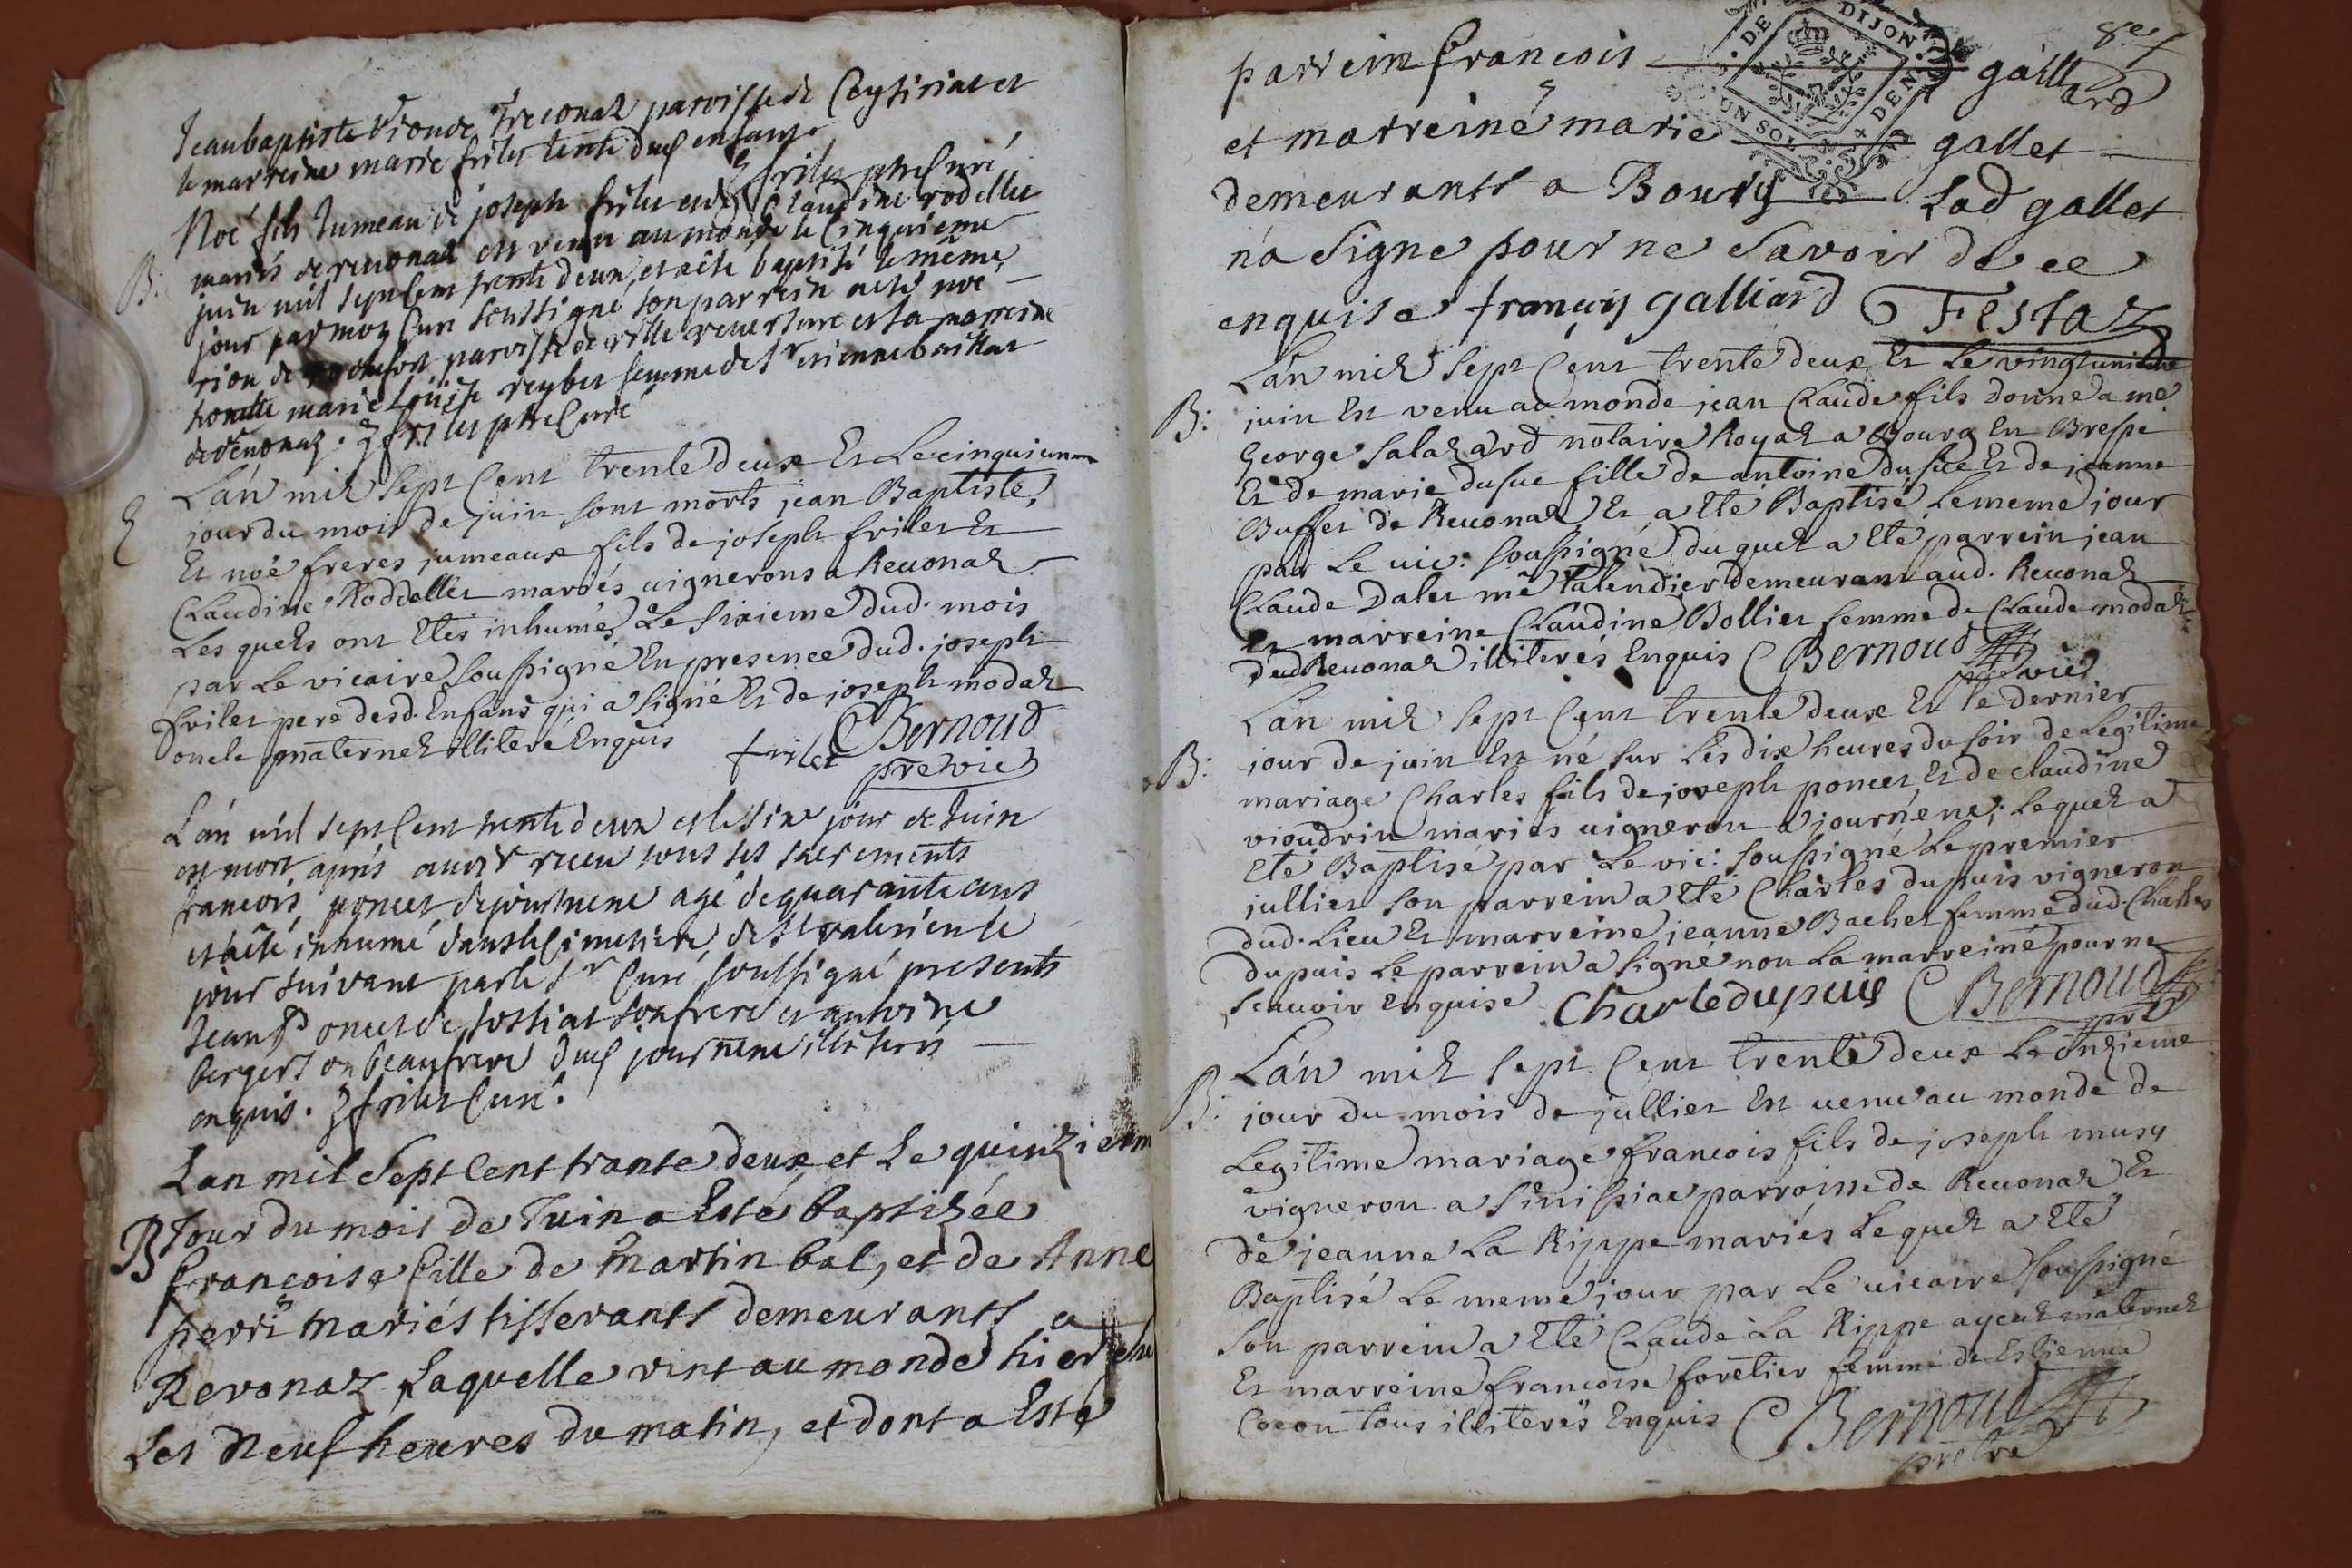 Jeanbaptiste Vionde Treconaz parroisse de Ceyziriat et
la marreine marie frilet tente dud enfant
Z frilet ptre Curé
B: Noé fils Jumeau de joseph frilet et de Claudine rodellet
mariés de revonaz est venu au monde le Cinquieme
juin mil sept Cent trente deux, et a été baptisé le même
jour par moy Curé soussigné son parrein a eté noé
rion de rochefort parroisse de ville reverture et sa marreine
honnête marie Louise reybet femme de Sr etienne baillat
de revonaz. Z frilet ptre Curé
E L'an mil sept Cent trente deux Et Le cinquieme
jour du mois de juin sont morts jean Baptiste
Et noë freres jumeaux fils de joseph frilet Et
Claudine Roddellet mariés vignerons a Reuonaz
Lesquels ont Etés inhumés Le sixieme dud. mois
par Le vicaire soussigné En presence dud. joseph
frilet pere desd. Enfans qui a signé Et de joseph modaz
oncle maternel illiteré Enquis
frilet CBernoud
pre vic
L'an mil sept Cent trente deux et le six jour de Juin
est mort après avoir receu tous ses sacrements
francois poncet de journene agé de quarante ans
et a eté inhumé dans le Cimetiere de St valerien le
jour suivant par le Sr Curé soussigné presents
Jean poncet de fossiat son frere et antoine
berger son beaufrere dud journene illiterés
enquis. Z frilet Curé.
Lan mil Sept Cent trante deux et Le quinzieme
B Jour du mois de Juin a Esté baptizée
françoise fille de Martin bal, et de Anne
perrin Mariés tisserants demeurants a
Revonaz Laquelle vint au monde hier
Les Neuf heures du matin, et dont a Esté
8e f
DE DIJON
UN SOL 4 DEN
parrein françois galliard
et marreine marie gallet
demeurants a Bourg Lad gallet
na Signe pour ne Savoir de ce
enquise françois galliard Festaz
L'an mil sept Cent trente deux Et Le vingtunieme
B: juin Est venu au monde jean Claude fils donné a me
George Salazard notaire Royal a Bourg En Bresse
Et de marie dusuc fille de antoine dusuc Et de jeanne
Buffet de Reuonaz Et a Eté Baptisé Le meme jour
par Le vic: soussigné duquel a Eté parrein jean
Claude Dalet me Talendier demeurant aud. Reuonaz
Et marreine Claudine Bollier femme de Claude modaz
dud Reuonaz illiterés Enquis CBernoud
pre vic
L'an mil sept Cent trente deux Et le dernier
B: jour de juin Est né sur Les dix heures du soir de Legitime
mariage Charles fils de joseph poncet Et de claudine
vioudrin mariés vigneron a journene; Lequel a
Eté Baptisé par Le vic: soussigné Le premier
jullier son parrein a Eté Charles dupuis vigneron
dud. Lieu Et marreine jeanne Bachet femme dud. Charles
dupuis Le parrein a signé non La marreine pour ne
scavoir Enquise Charle dupuis CBernoud
pre
L'an mil sept Cent trente deux Le onzieme
B: jour du mois de jullier Est uenu au monde de
Legitime mariage francois fils de joseph musy
vigneron a Sinissiac parroisse de Reuonaz Et
de jeanne La Rippe mariés Lequel a Eté
Baptisé Le meme jour par Le vicaire soussigné
son parrein a Eté Claude La Rippe ayeul maternel
Et marreine francoise foretier femme de Estienne
Cocon tous illiterés Enquis CBernoud
prêtre